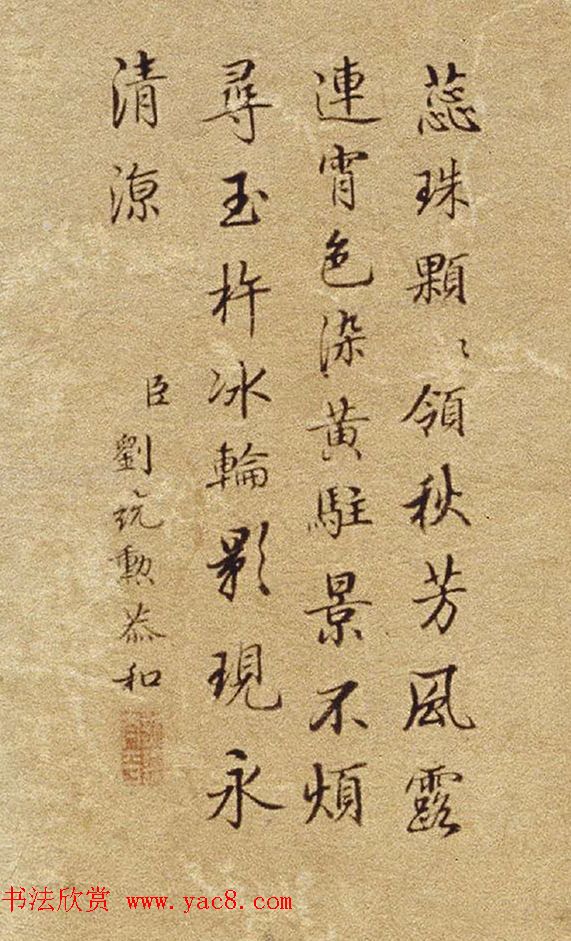 蕊珠顆〻領秋芳風露
連宵色染黃駐景不煩
尋玉杵冰輪影現永
清涼
臣劉統勳恭和
书法欣赏 www.yac8.com